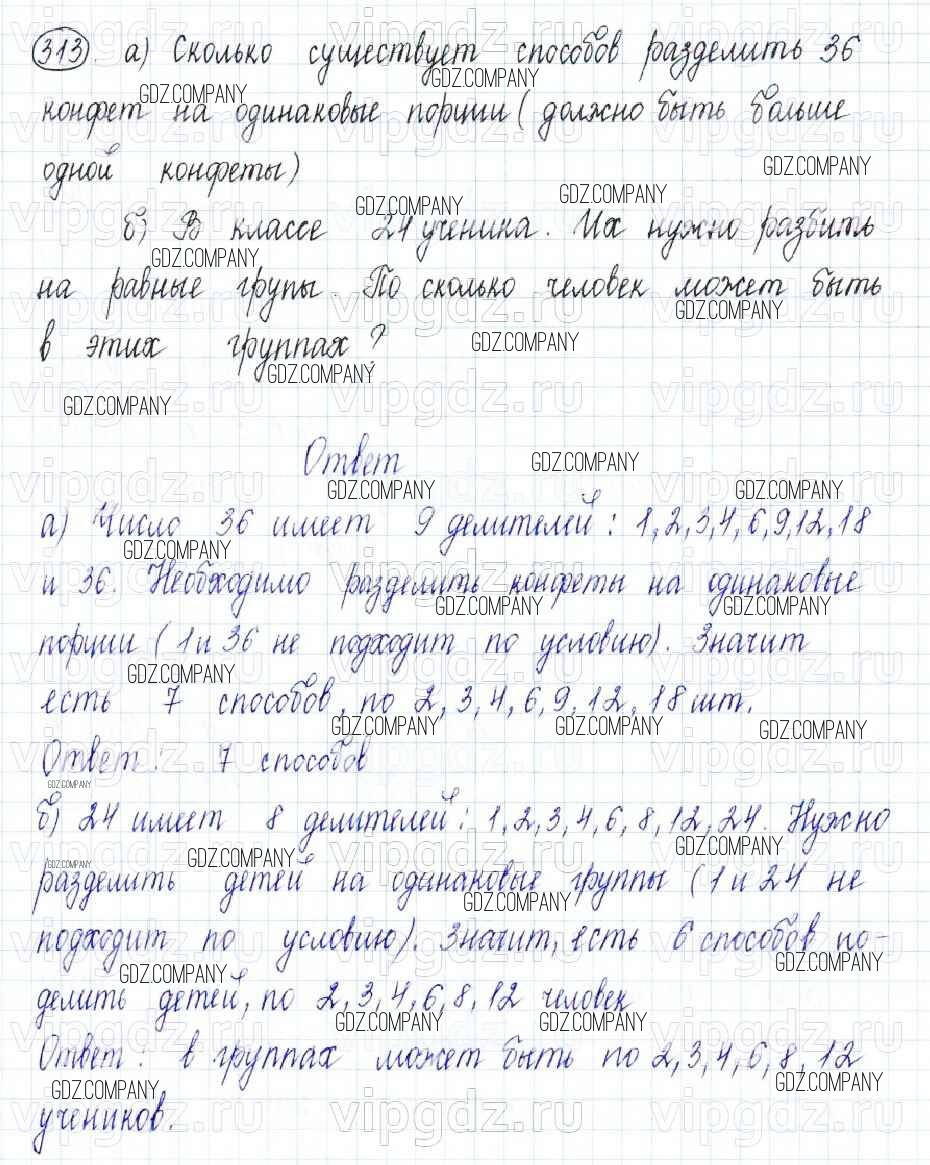 313. а) Сколько существует способов разделить 36
конфет на одинаковые порции (должно быть больше
одной конфеты)
б) В классе 24 ученика. Их нужно разбить
на равные групы. По сколько человек может быть
в этих группах?
Ответ
а) Число 36 имеет 9 делителей: 1,2,3,4,6,9,12,18
и 36. Необходимо разделить конфеты на одинаковые
порции (1 и 36 не подходит по условию). Значит
есть 7 способов, по 2,3,4,6,9,12,18 шт.
Ответ: 7 способов
б) 24 имеет 8 делителей: 1,2,3,4,6,8,12,24. Нужно
разделить детей на одинаковые группы (1 и 24 не
подходит по условию). Значит, есть 6 способов по-
делить детей, по 2,3,4,6,8,12 человек
Ответ: в группах может быть по 2,3,4,6,8,12
учеников.